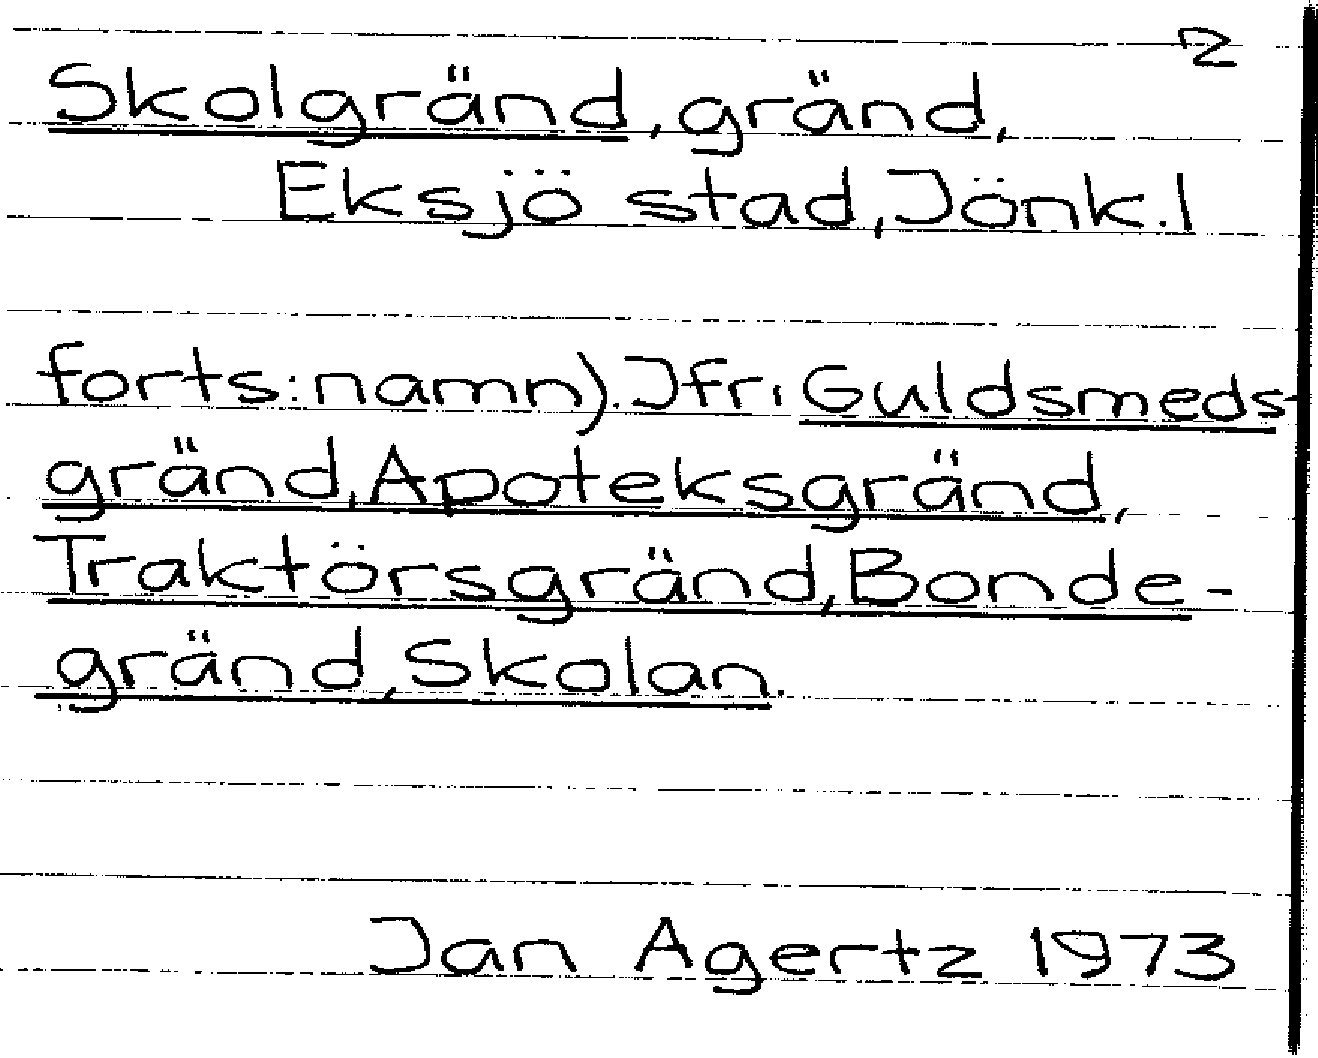 2
Skolgränd, gränd,
Eksjö stad, Jönk. l
forts: namn). Jfr. Guldsmeds-
gränd, Apoteksgränd,
Traktörsgränd, Bonde-
gränd, Skolan.
Jan Agertz 1973